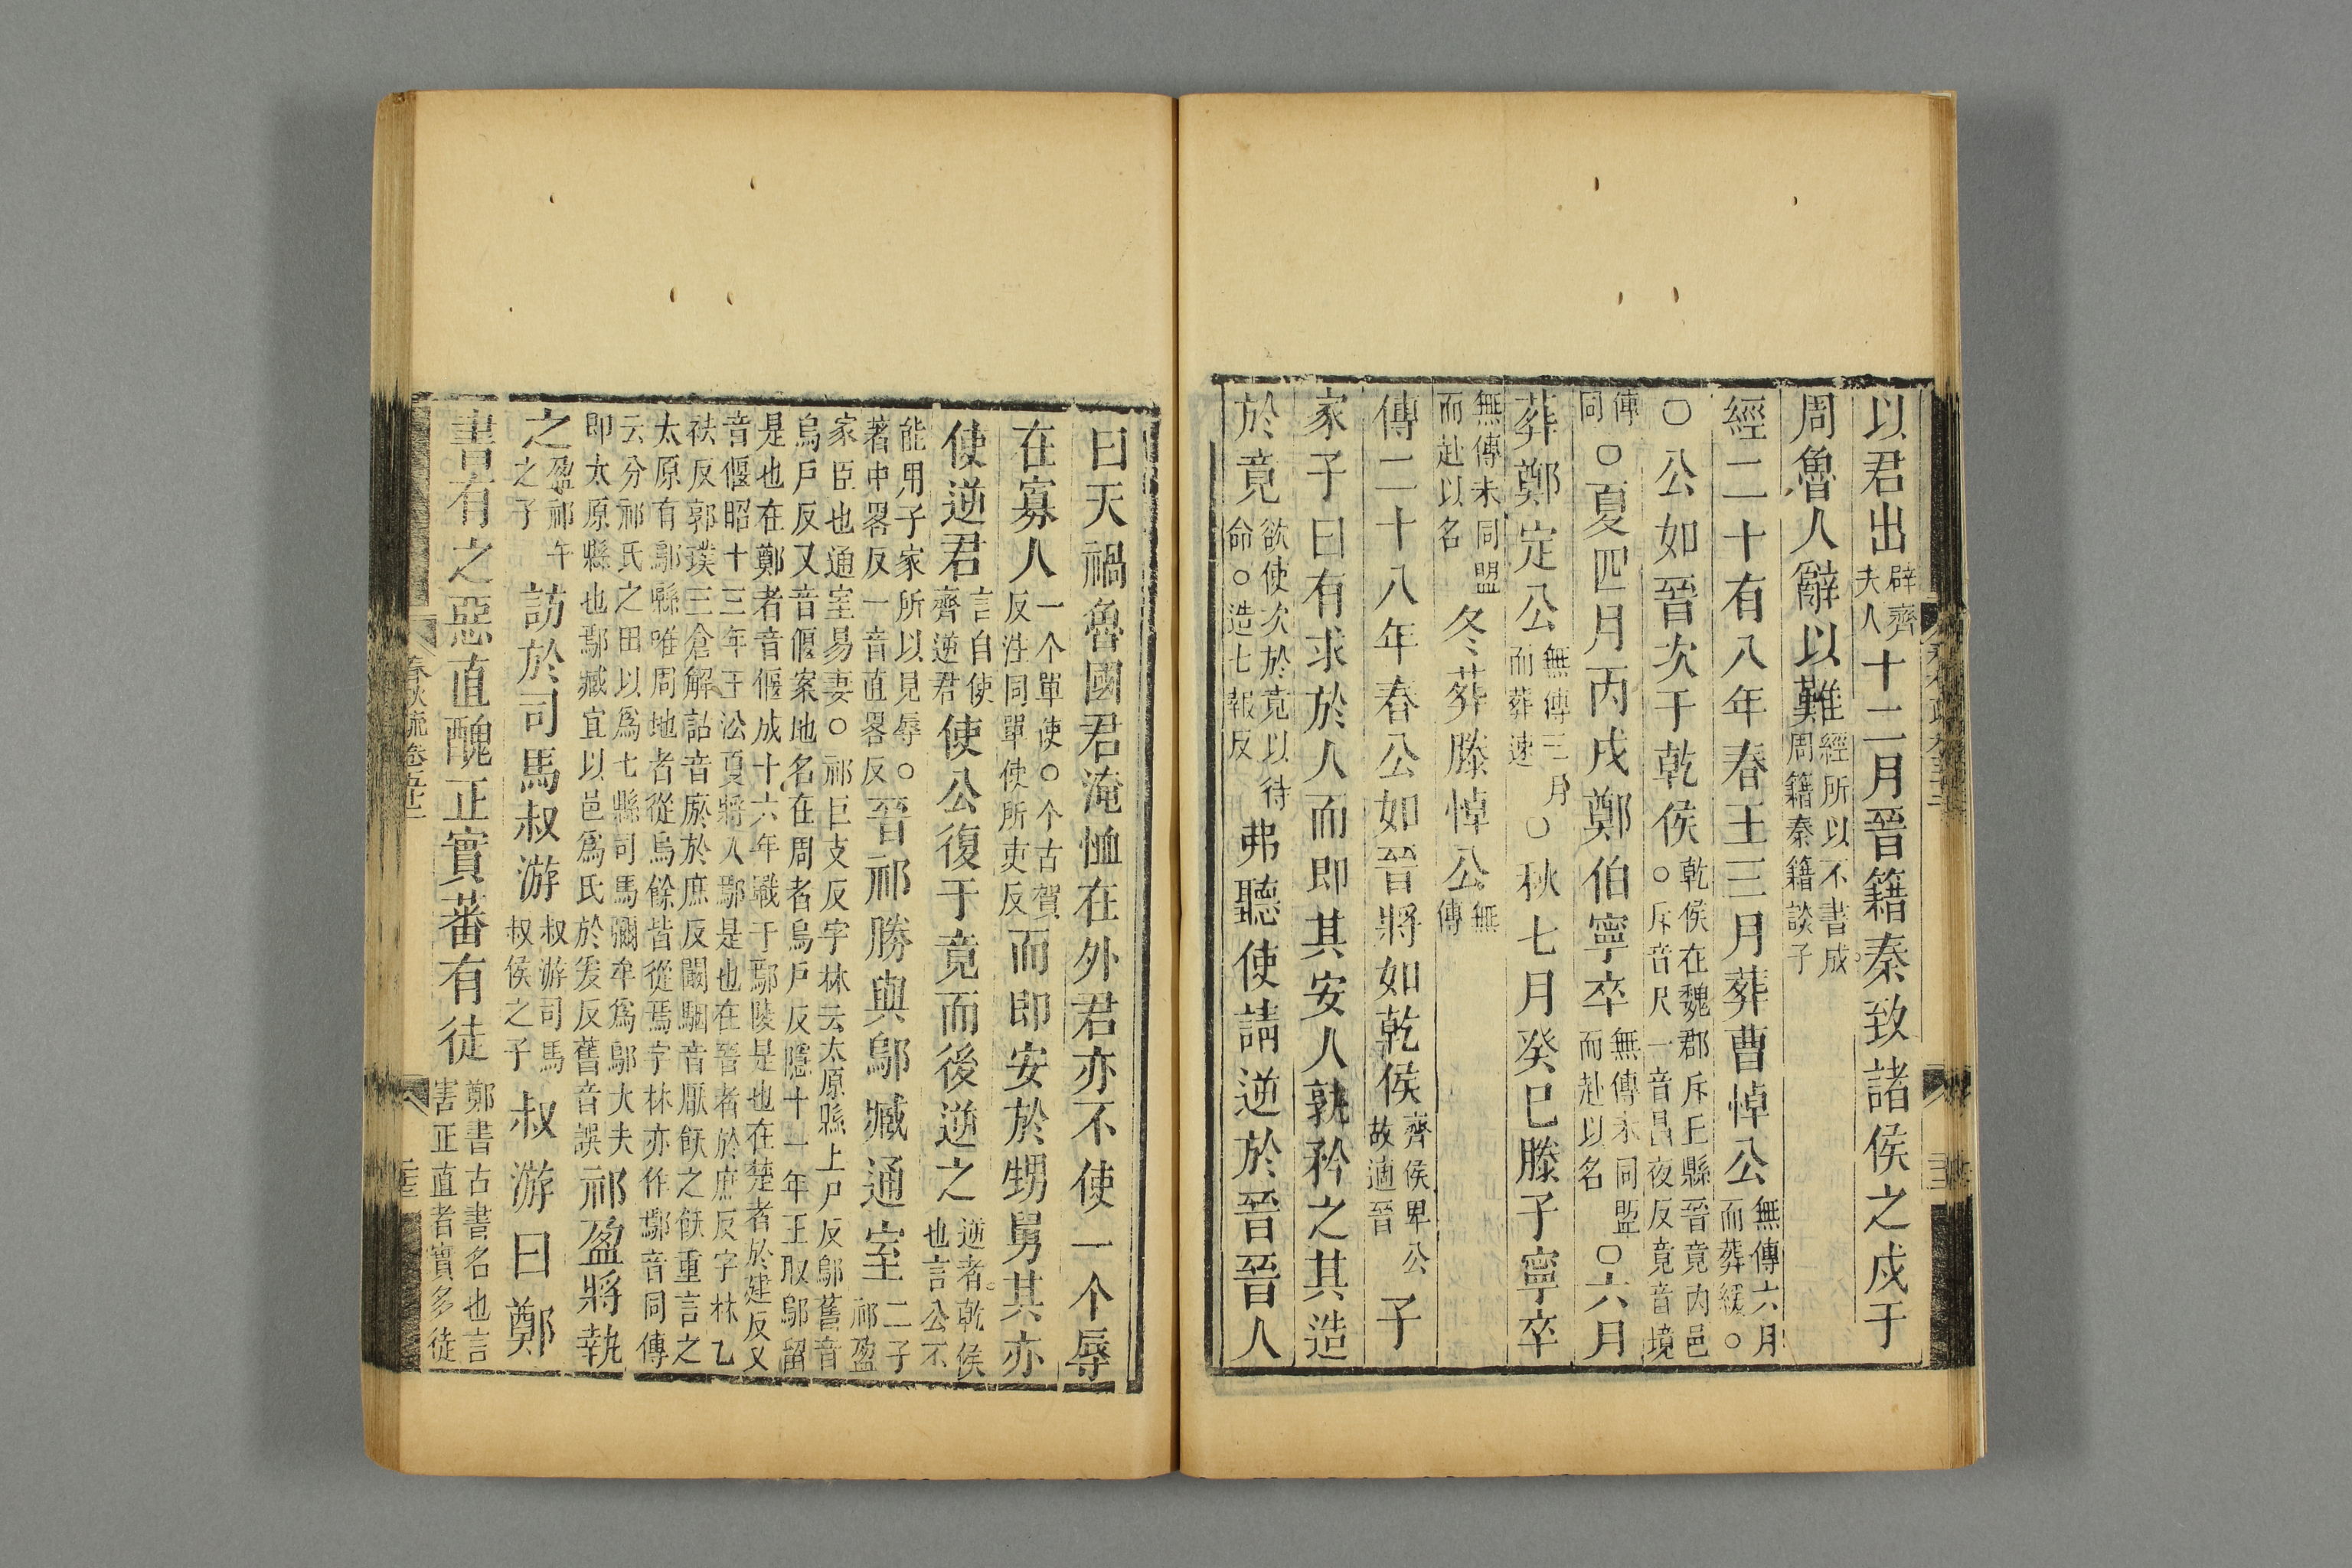 以君出辟齊夫人十二月晉籍秦致諸侯之戍于
周魯人辭以難經所以不書成周籍秦籍談子
經二十有八年春王三月葬曹悼公無傳六月而葬緩○
○公如晉次于乾侯乾侯在魏郡斥丘縣晉竟內邑○斥音尺一音昌夜反竟音境
傳同○夏四月丙戌鄭伯寧卒無傳未同盟而赴以名○六月
葬鄭定公無傳三月而葬速○秋七月癸巳滕子寧卒
無傳未同盟而赴以名冬葬滕悼公無傳
傳二十八年春公如晉將如乾侯齊侯卑公故適晉子
家子曰有求於人而即其安人孰矜之其造
於竟欲使次於竟以待命○造七報反弗聽使請逆於晉晉人
曰天禍魯國君淹恤在外君亦不使一个辱
在寡人一个單使○个古賀反注同單使所吏反而即安於甥舅其亦
使逆君言自使齊逆君使公復于竟而後逆之逆者乾侯也言公不
能用子家所以見辱○著中畧反一音直畧反晉祁勝與鄔臧通室二子祁盈
家臣也通室易妻○祁巨支反字林云太原縣上尸反鄔舊音
烏戶反又音偃案地名在周者烏戶反隱十一年王取鄔留
是也在鄭者音偃成十六年戰于鄢陵是也在楚者於建反又
音偃昭十三年王沿夏將入鄢是也在晉者於庶反字林乙
祛反郭璞三倉解詁音瘀於庶反闞駰音厭飫之飫重言之
太原有鄔縣唯周地者從烏餘皆從焉字林亦作鄢音同傳
云分祁氏之田以為七縣司馬彌牟為鄔大夫
即太原縣也鄢臧宜以邑為氏於爰反舊音誤祁盈將執
之盈祁午之子訪於司馬叔游叔游司馬叔侯之子叔游曰鄭
書有之惡直醜正實蕃有徒鄭書古書名也言害正直者實多徒
春秋疏卷五十二